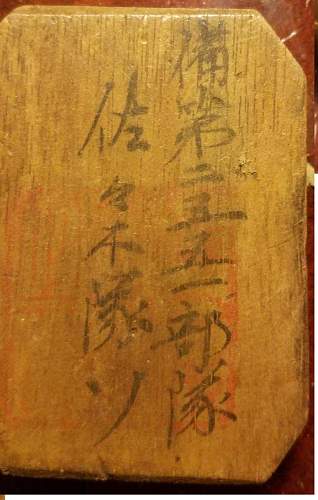 備第二五五一部隊
佐々木隊ソ